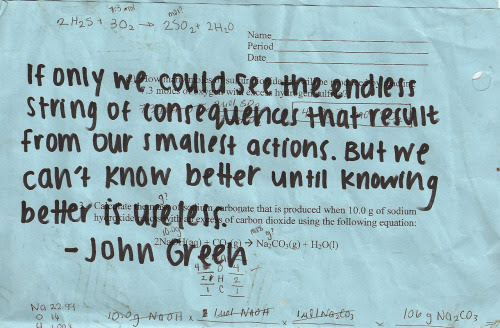 7.3 mol mol?
2H₂S + 3O₂ → 2SO₂ + 2H₂O
Name
Period
Date
If only we could see the endless
string of consequences that result
from our smallest actions. But we
can't know better until knowing
better is useless.
- John Green
Calculate the mass of sodium carbonate that is produced when 10.0 g of sodium
hydroxide reacts with an excess of carbon dioxide using the following equation:
10.0g mass g?
2NaOH(aq) + CO₂(g) → Na₂CO₃(g) + H₂O(l)
4 O 4
2 H 2
1 C 1
Na 22.99
10.0g NaOH x 1 mol NaOH x 1 mol Na₂CO₃ 106 g Na₂CO₃